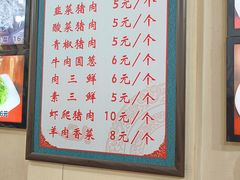 韭菜猪肉 5元/个
酸菜猪肉 5元/个
青椒猪肉 5元/个
牛肉圆葱 6元/个
肉三鲜 6元/个
素三鲜 5元/个
虾爬猪肉 10元/个
羊肉香菜 8元/个